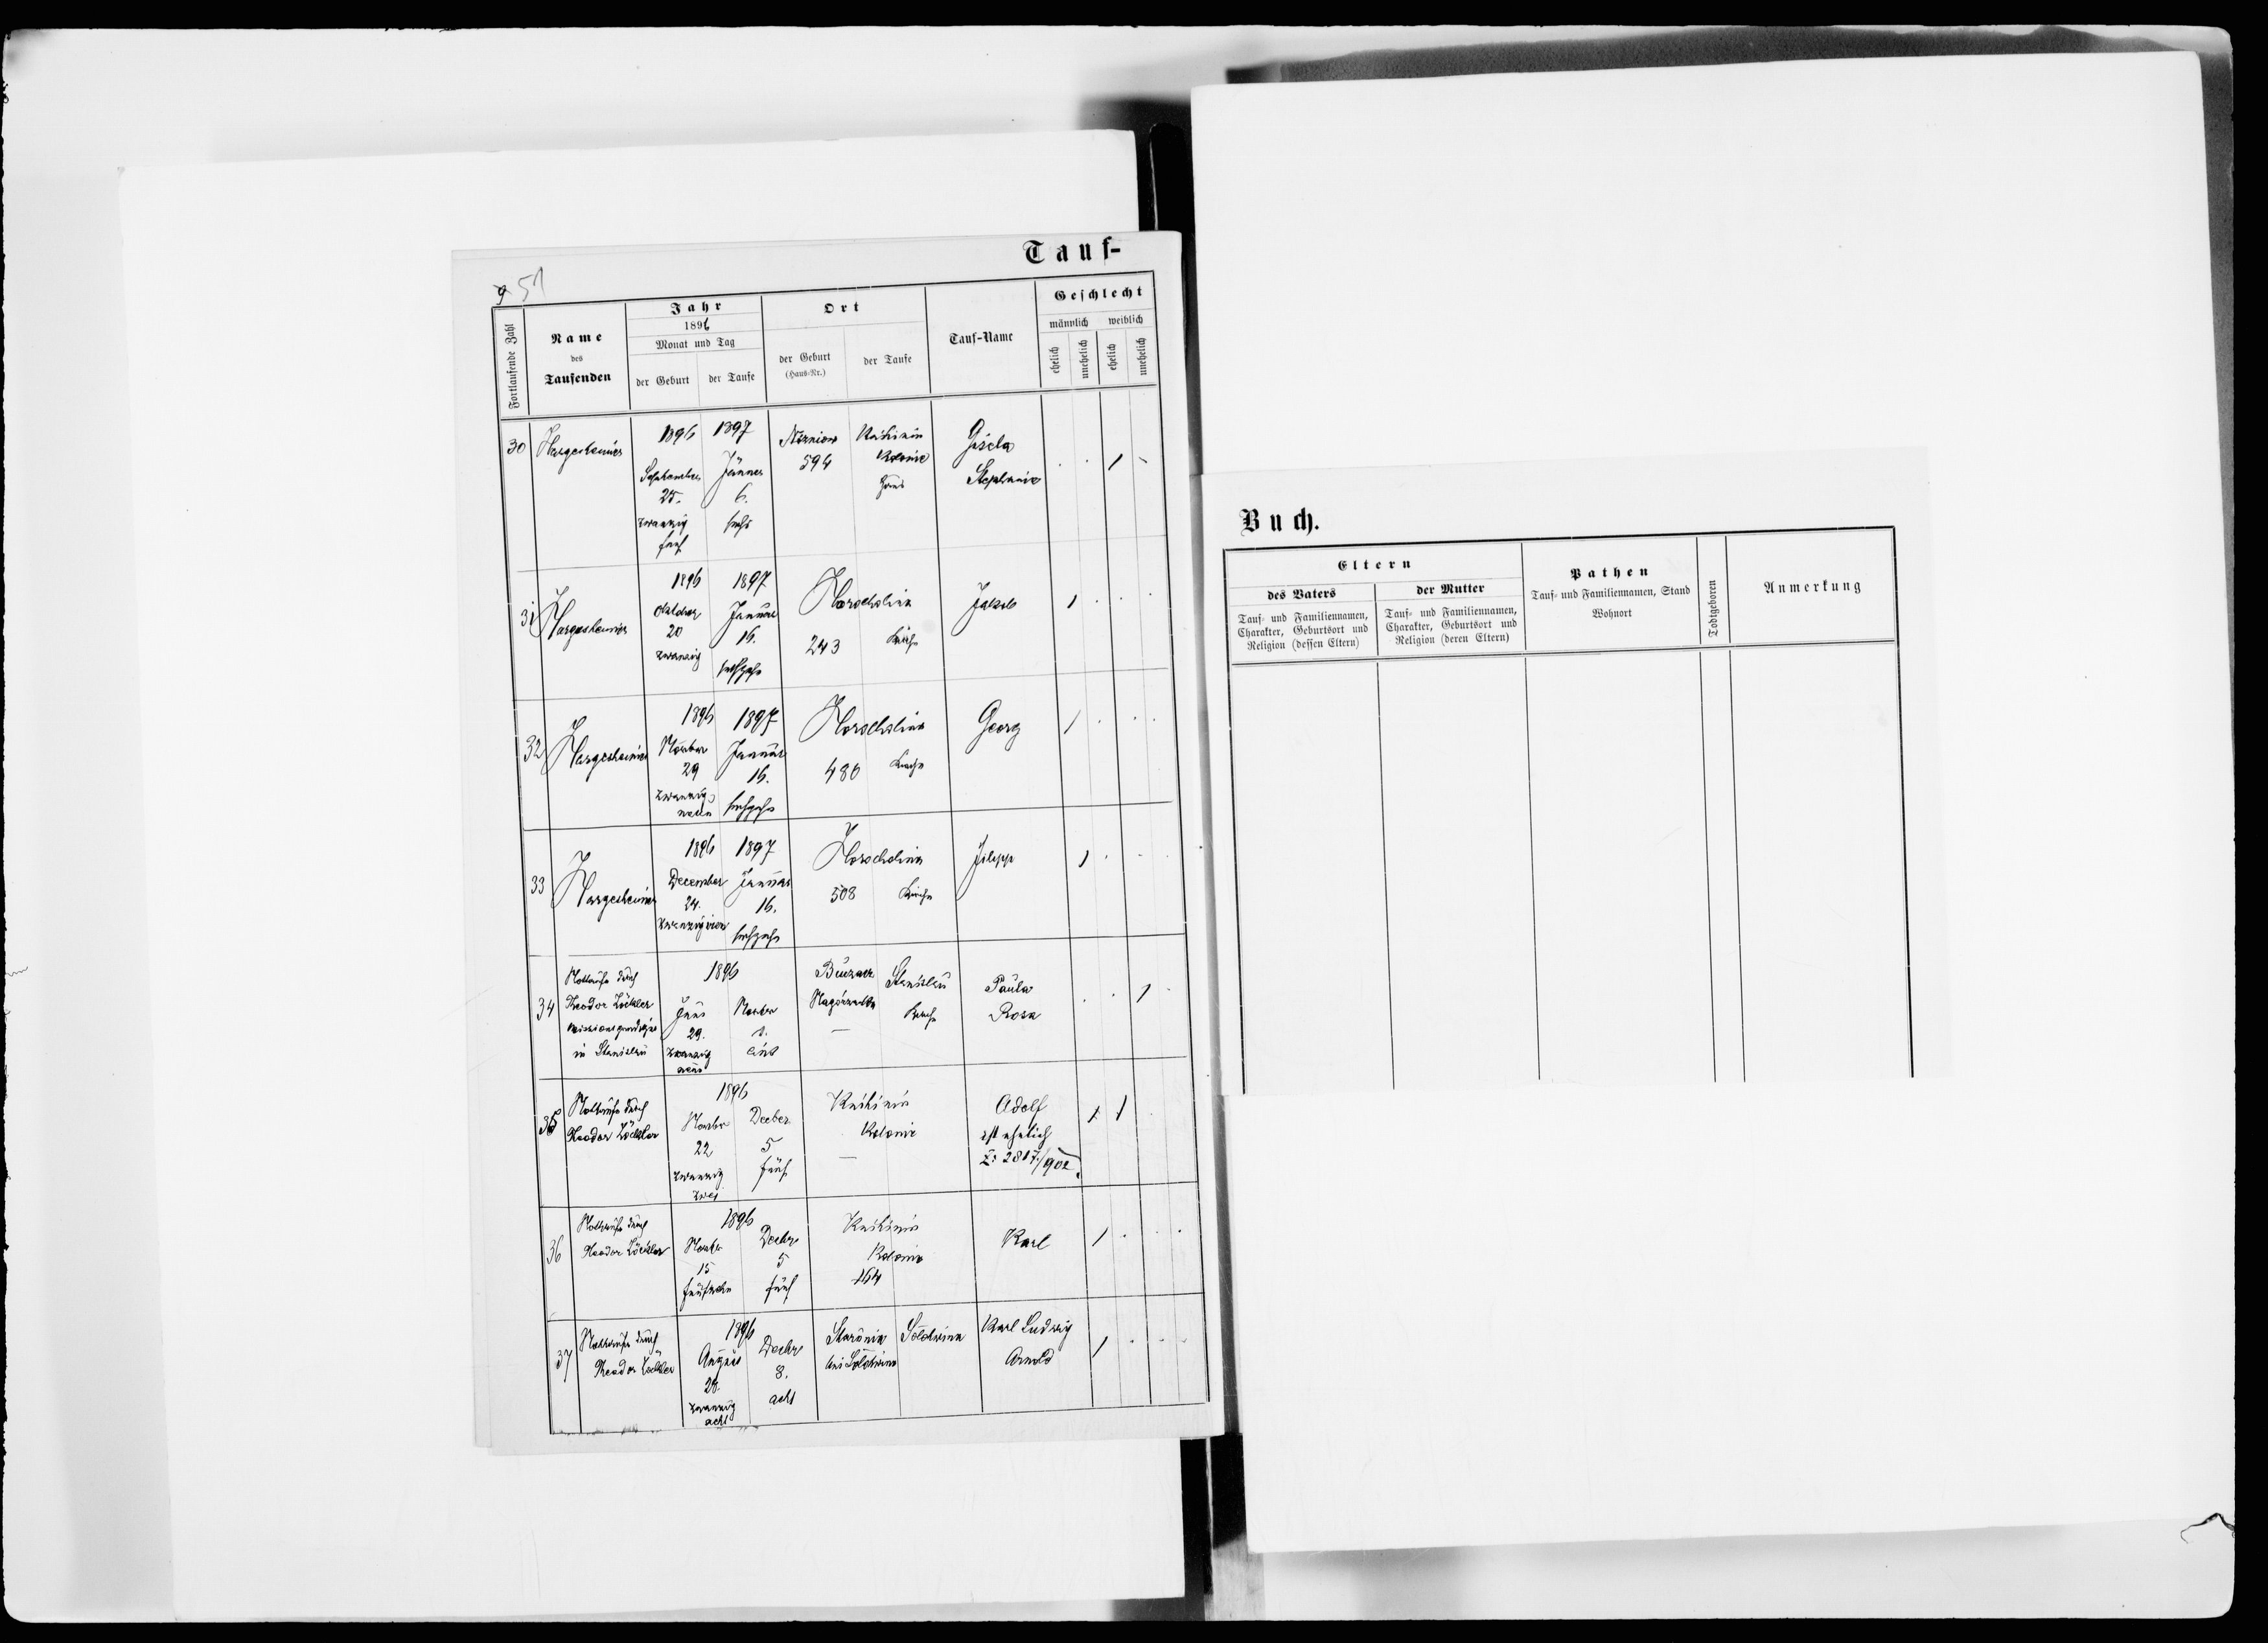 Tauf-
51
Fortlaufende Zahl
Name
des
Taufenden
Jahr
1896
Monat und Tag
der Geburt
der Taufe
Ort
der Geburt
(Haus-Nr.)
der Taufe
Tauf-Name
Geschlecht
männlich
weiblich
ehelich
unehelich
ehelich
unehelich
30
Hargesheimer
1896
September
25.
zwanzig
fünf
1897
Jänner
6.
sechs
594
Knihinin
Kolonie
Haus
Gisela
Stephanie
31
Hargesheimer
1896
Oktober
20
zwanzig
1897
Januar
16.
sechzehn
Horocholina
243
Kirche
Jakob
32
Hargesheimer
1896
Novber
29
zwanzig
neun
1897
Januar
16.
sechzehn
Horocholina
480
Kirche
Georg
33
Hargesheimer
1896
December
24.
zwanzigvier
1897
Januar
16.
sechzehn
Horocholina
508
Kirche
Filipp
34
Nottaufe durch
Theodor Zöckler
in Stanislau
1896
Juni
29.
zwanzig
neun
Novber
1.
eins
Stanislau
Kirche
Paula
Rosa
35
Nottaufe durch
Theodor Zöckler
1896
Novbr
22
zwanzig
zwei
Decber
5
fünf
Knihinin
Kolonie
Adolf
ist ehelich
Z: 2817/902
36
Nottaufe durch
Theodor Zöckler
1896
Novbr
15
fünfzehn
Decbr
5
fünf
Knihinin
Kolonie
164
Karl
37
Nottaufe durch
Theodor Zöckler
1896
August
28.
zwanzig
acht
Decbr
8.
acht
Solotwina
bei Solotwina
Karl Ludwig
Arnold
Buch.
Eltern
des Vaters
Tauf- und Familiennamen,
Charakter, Geburtsort und
Religion (dessen Eltern)
der Mutter
Tauf- und Familiennamen,
Charakter, Geburtsort und
Religion (deren Eltern)
Pathen
Tauf- und Familiennamen, Stand
Wohnort
Todtgeboren
Anmerkung